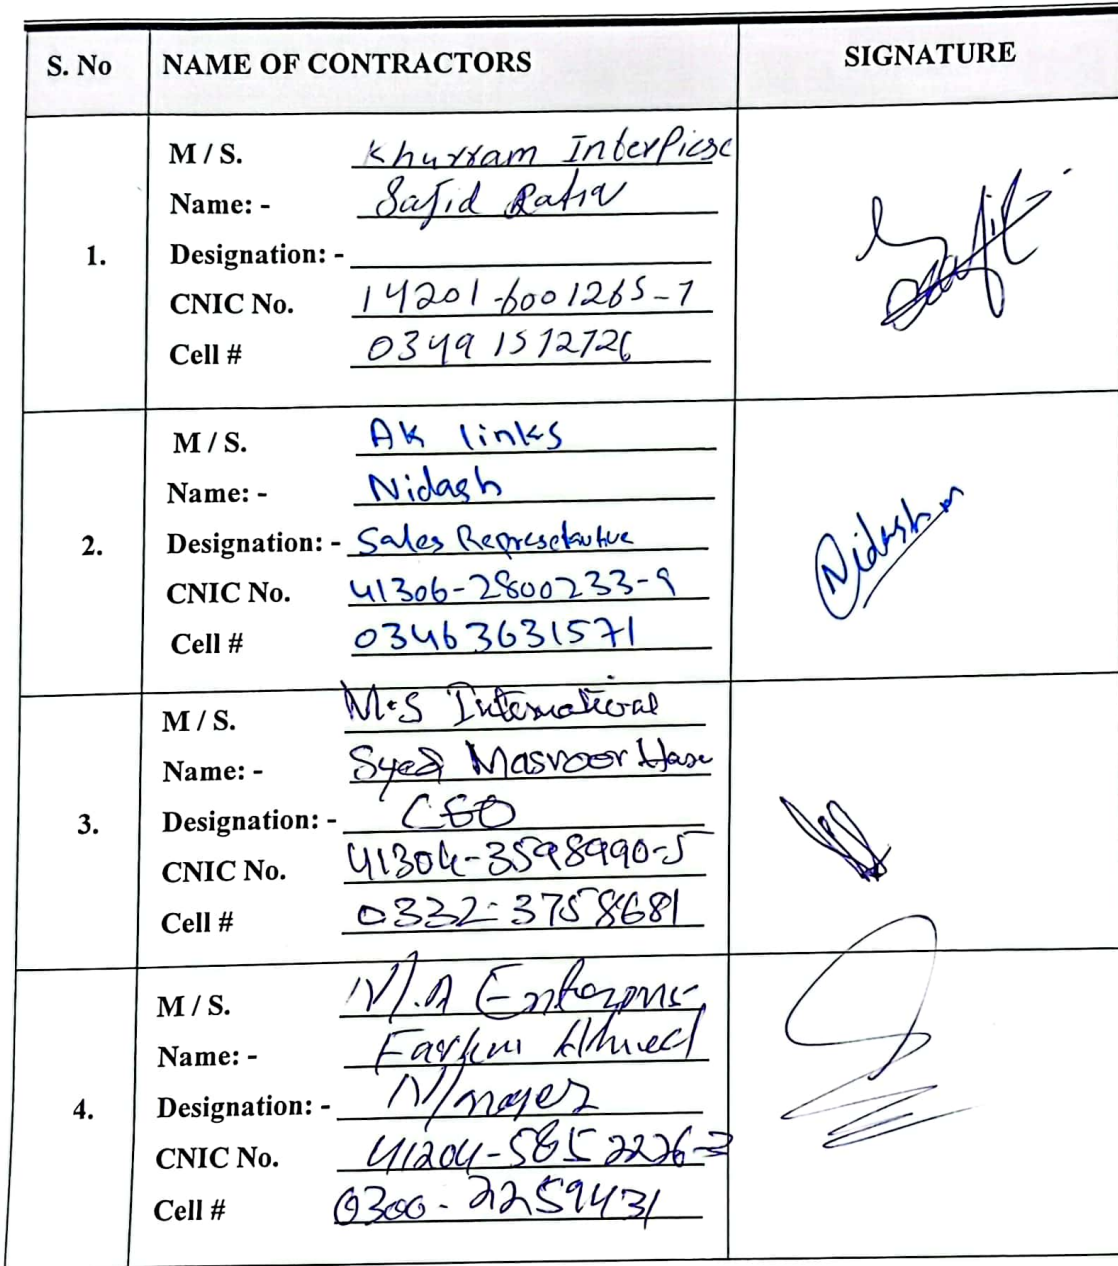 S. No NAME OF CONTRACTORS SIGNATURE
1.
M / S. Khurram InterPicse
Name: - Sajid
Designation: -
CNIC No. 14201-6001265-7
Cell # 03491572726
2.
M / S. AK links
Name: - Nidash
Designation: - Sales Represetative
CNIC No. 41306-2800233-9
Cell # 03463631571
Nidash
3.
M / S. M.S International
Name: - Syed Masroor Hasn
Designation: - CEO
CNIC No. 41304-3598990-5
Cell # 0332-3758681
4.
M / S. M.A Enterprise
Name: - Ahmed
Designation: - Manager
CNIC No. 41204-5852226-3
Cell # 0300-2259431